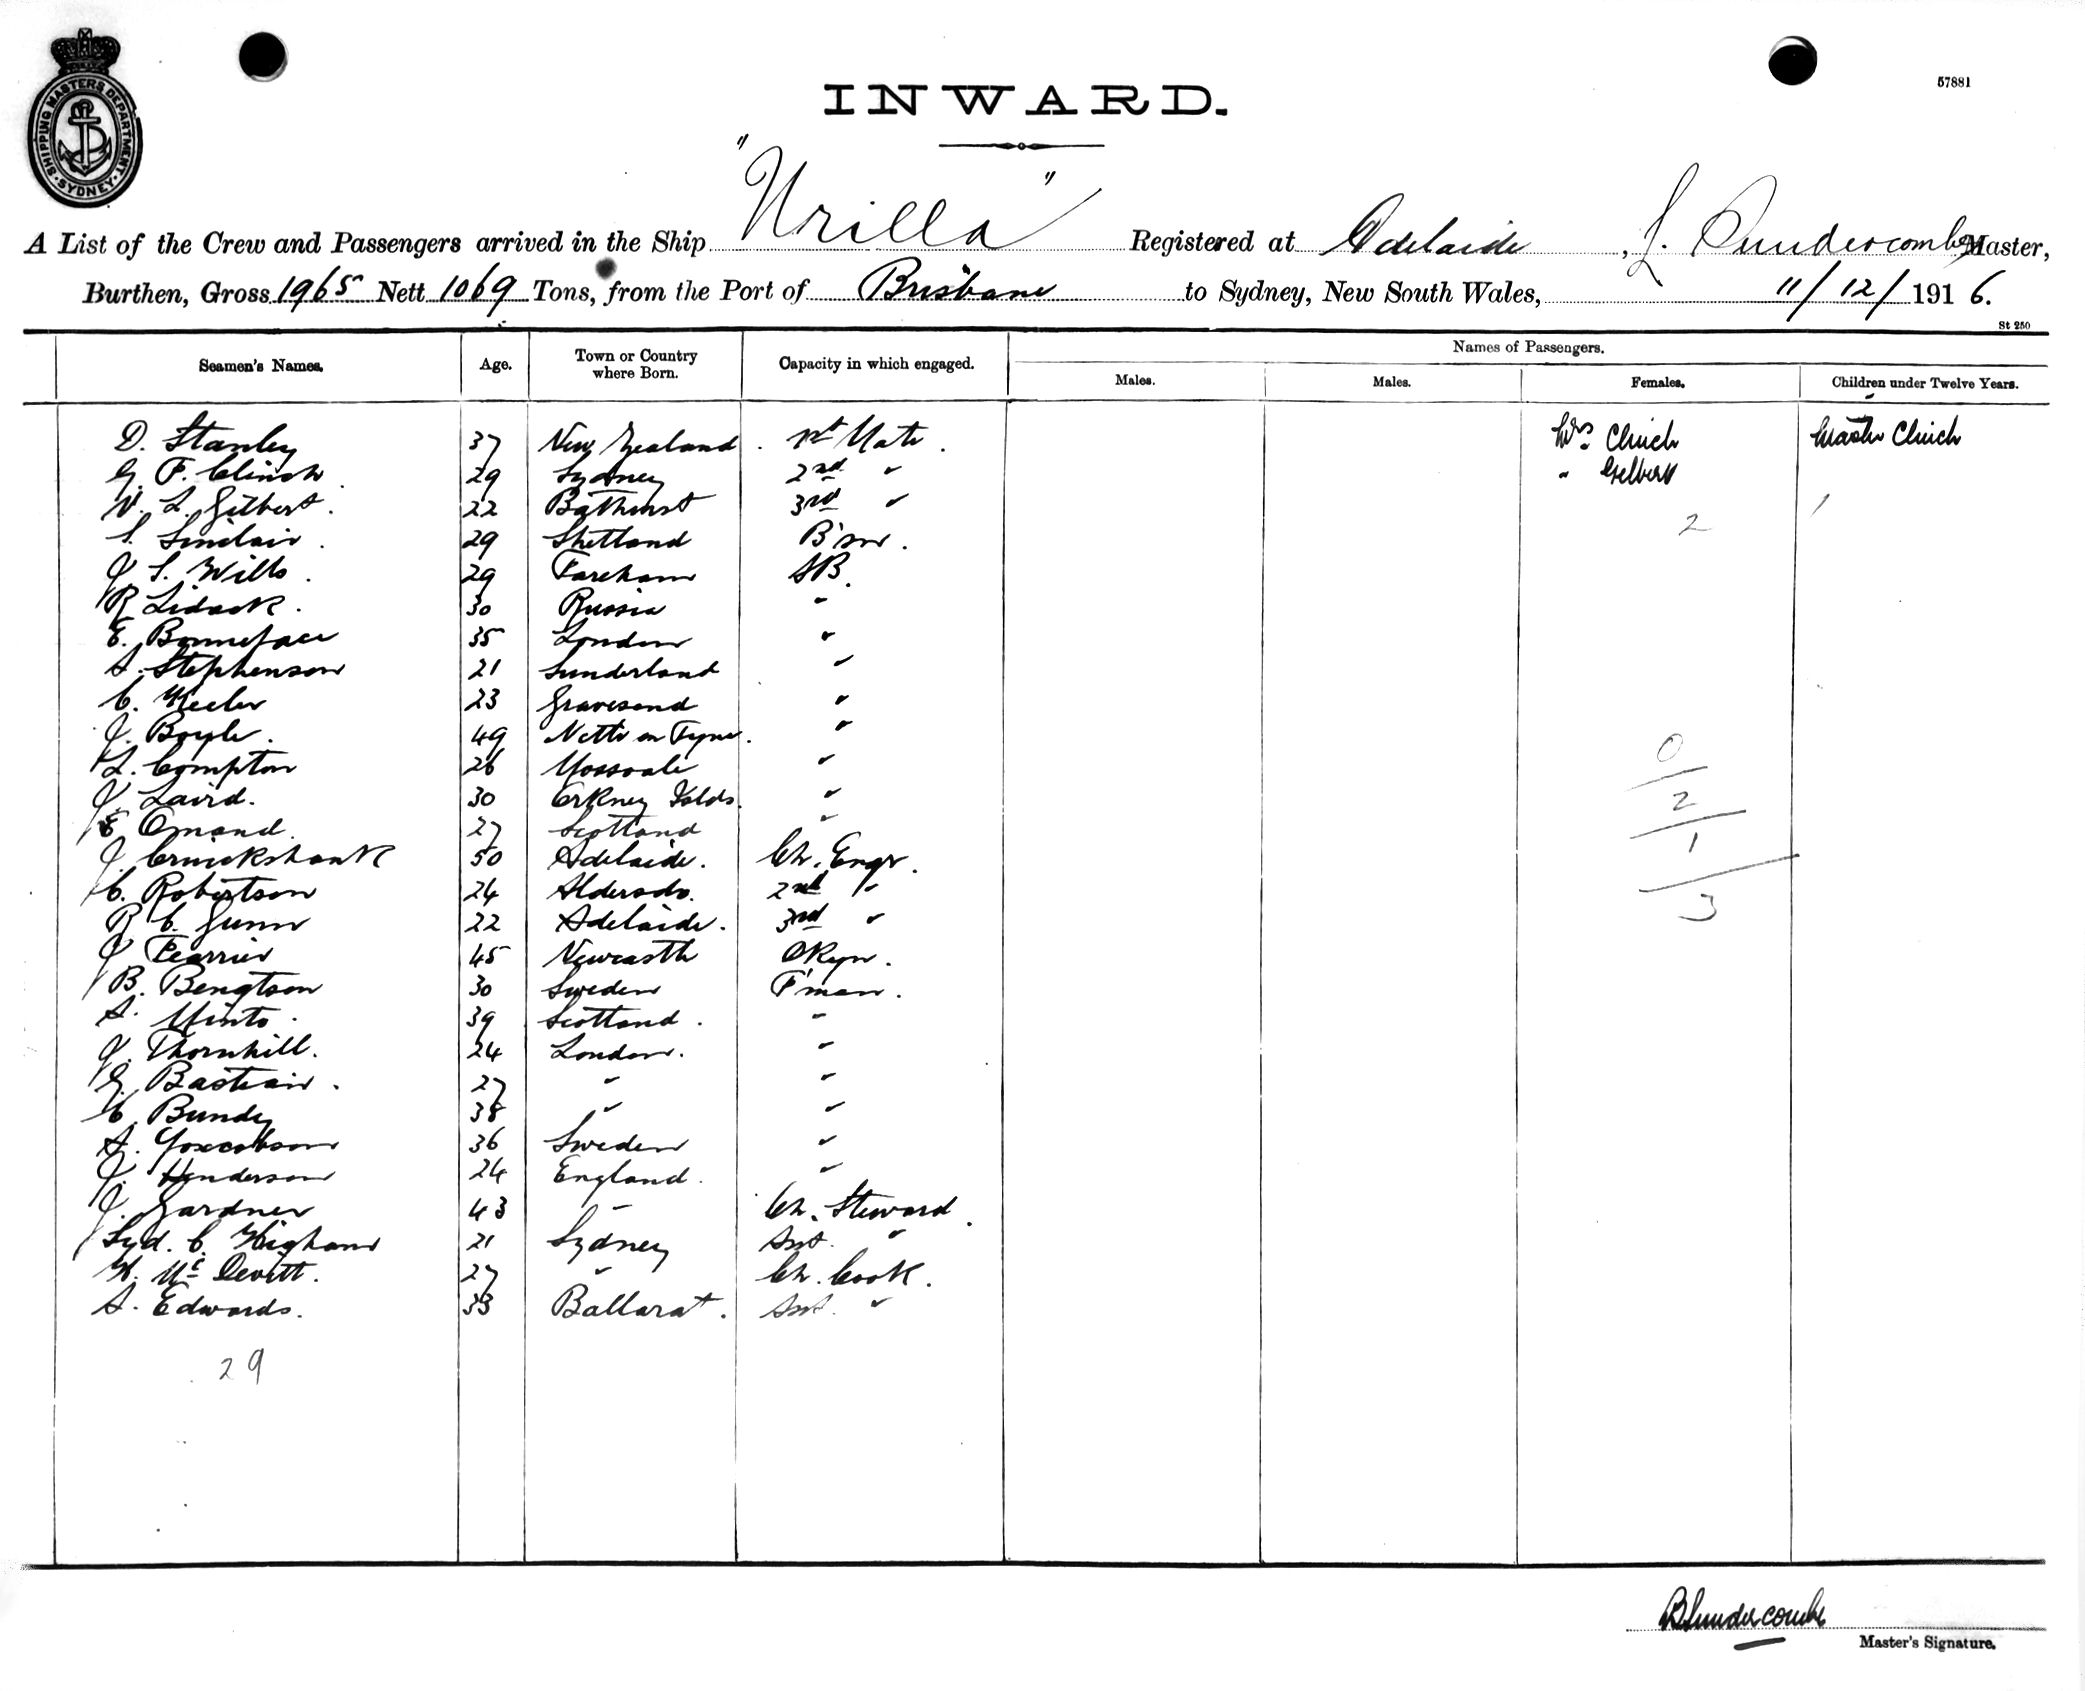 SHIPPING MASTERS DEPARTMENT · SYDNEY ·
57881
INWARD.
A List of the Crew and Passengers arrived in the Ship "Urilla" Registered at Adelaide, Master,
Burthen, Gross 1965 Nett 1069 Tons, from the Port of Brisbane to Sydney, New South Wales, 11/12/1916.
St 250
Seamen's Names. Age. Town or Country where Born. Capacity in which engaged. Names of Passengers.
Males. Males. Females. Children under Twelve Years.
D. Stanley 37 New Zealand. 1st Mate. Mrs Clinch Master Clinch
G. F. Clinch 29 Sydney 2nd " " Gilbert
V. L. Gilbert. 22 Bathurst 3rd "
S. Sinclair. 29 Shetland B'sn. 2 1
J. S. Wills. 29 Fareham AB.
R. Lidack. 30 Russia "
E. Bonneface 35 London "
A. Stephenson 21 Sunderland "
C. Keeler 23 Gravesend "
J. Boyle. 49 on Tyne. "
L. Compton 26 Mossvale "
J. Laird. 30 Orkney Islds. "
E. Omand. 27 Scotland "
J. Cruickshank 50 Adelaide. Ch. Engr.
C. Robertson 24 2nd "
R. C. Gunn 22 Adelaide. 3rd "
J. 45 Newcastle Dkyn.
B. Bengtson 30 Sweden F'man.
A. Minto. 39 Scotland. "
J. Thornhill. 24 London. "
G. Bastian. 27 " "
C. Bundy 38 " "
A. 36 Sweden "
J. Henderson 24 England. "
J. Gardner 43 " Ch. Steward.
Syd. C. Higham 21 Sydney Asst. "
H. McDevitt. 27 " Ch. Cook.
A. Edwards. 33 Ballarat. Asst. "
29
0
2
1
3
Master's Signature.